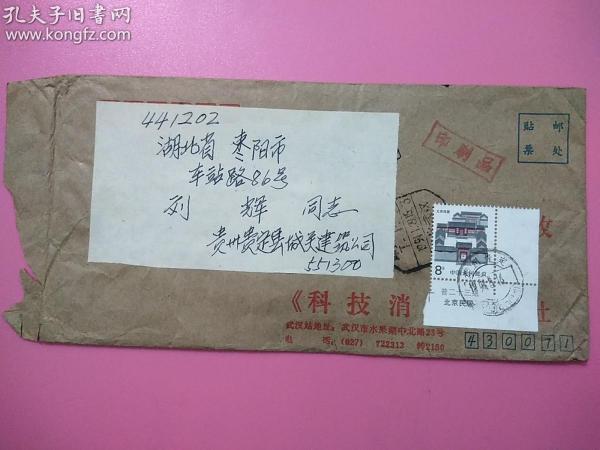 孔夫子旧书网
www.kongfz.com
441202
湖北省 枣阳市
车站路86号
刘 辉 同志
贵州贵定县城关建筑公司
551300
邮票
贴处
印刷品
北京民居
8分 中国人民邮政
普二十三
北京民居
收
《科技消
社
武汉站地址：武汉市水果湖中北路23号
电 话：(027) 722313 转2150
430071